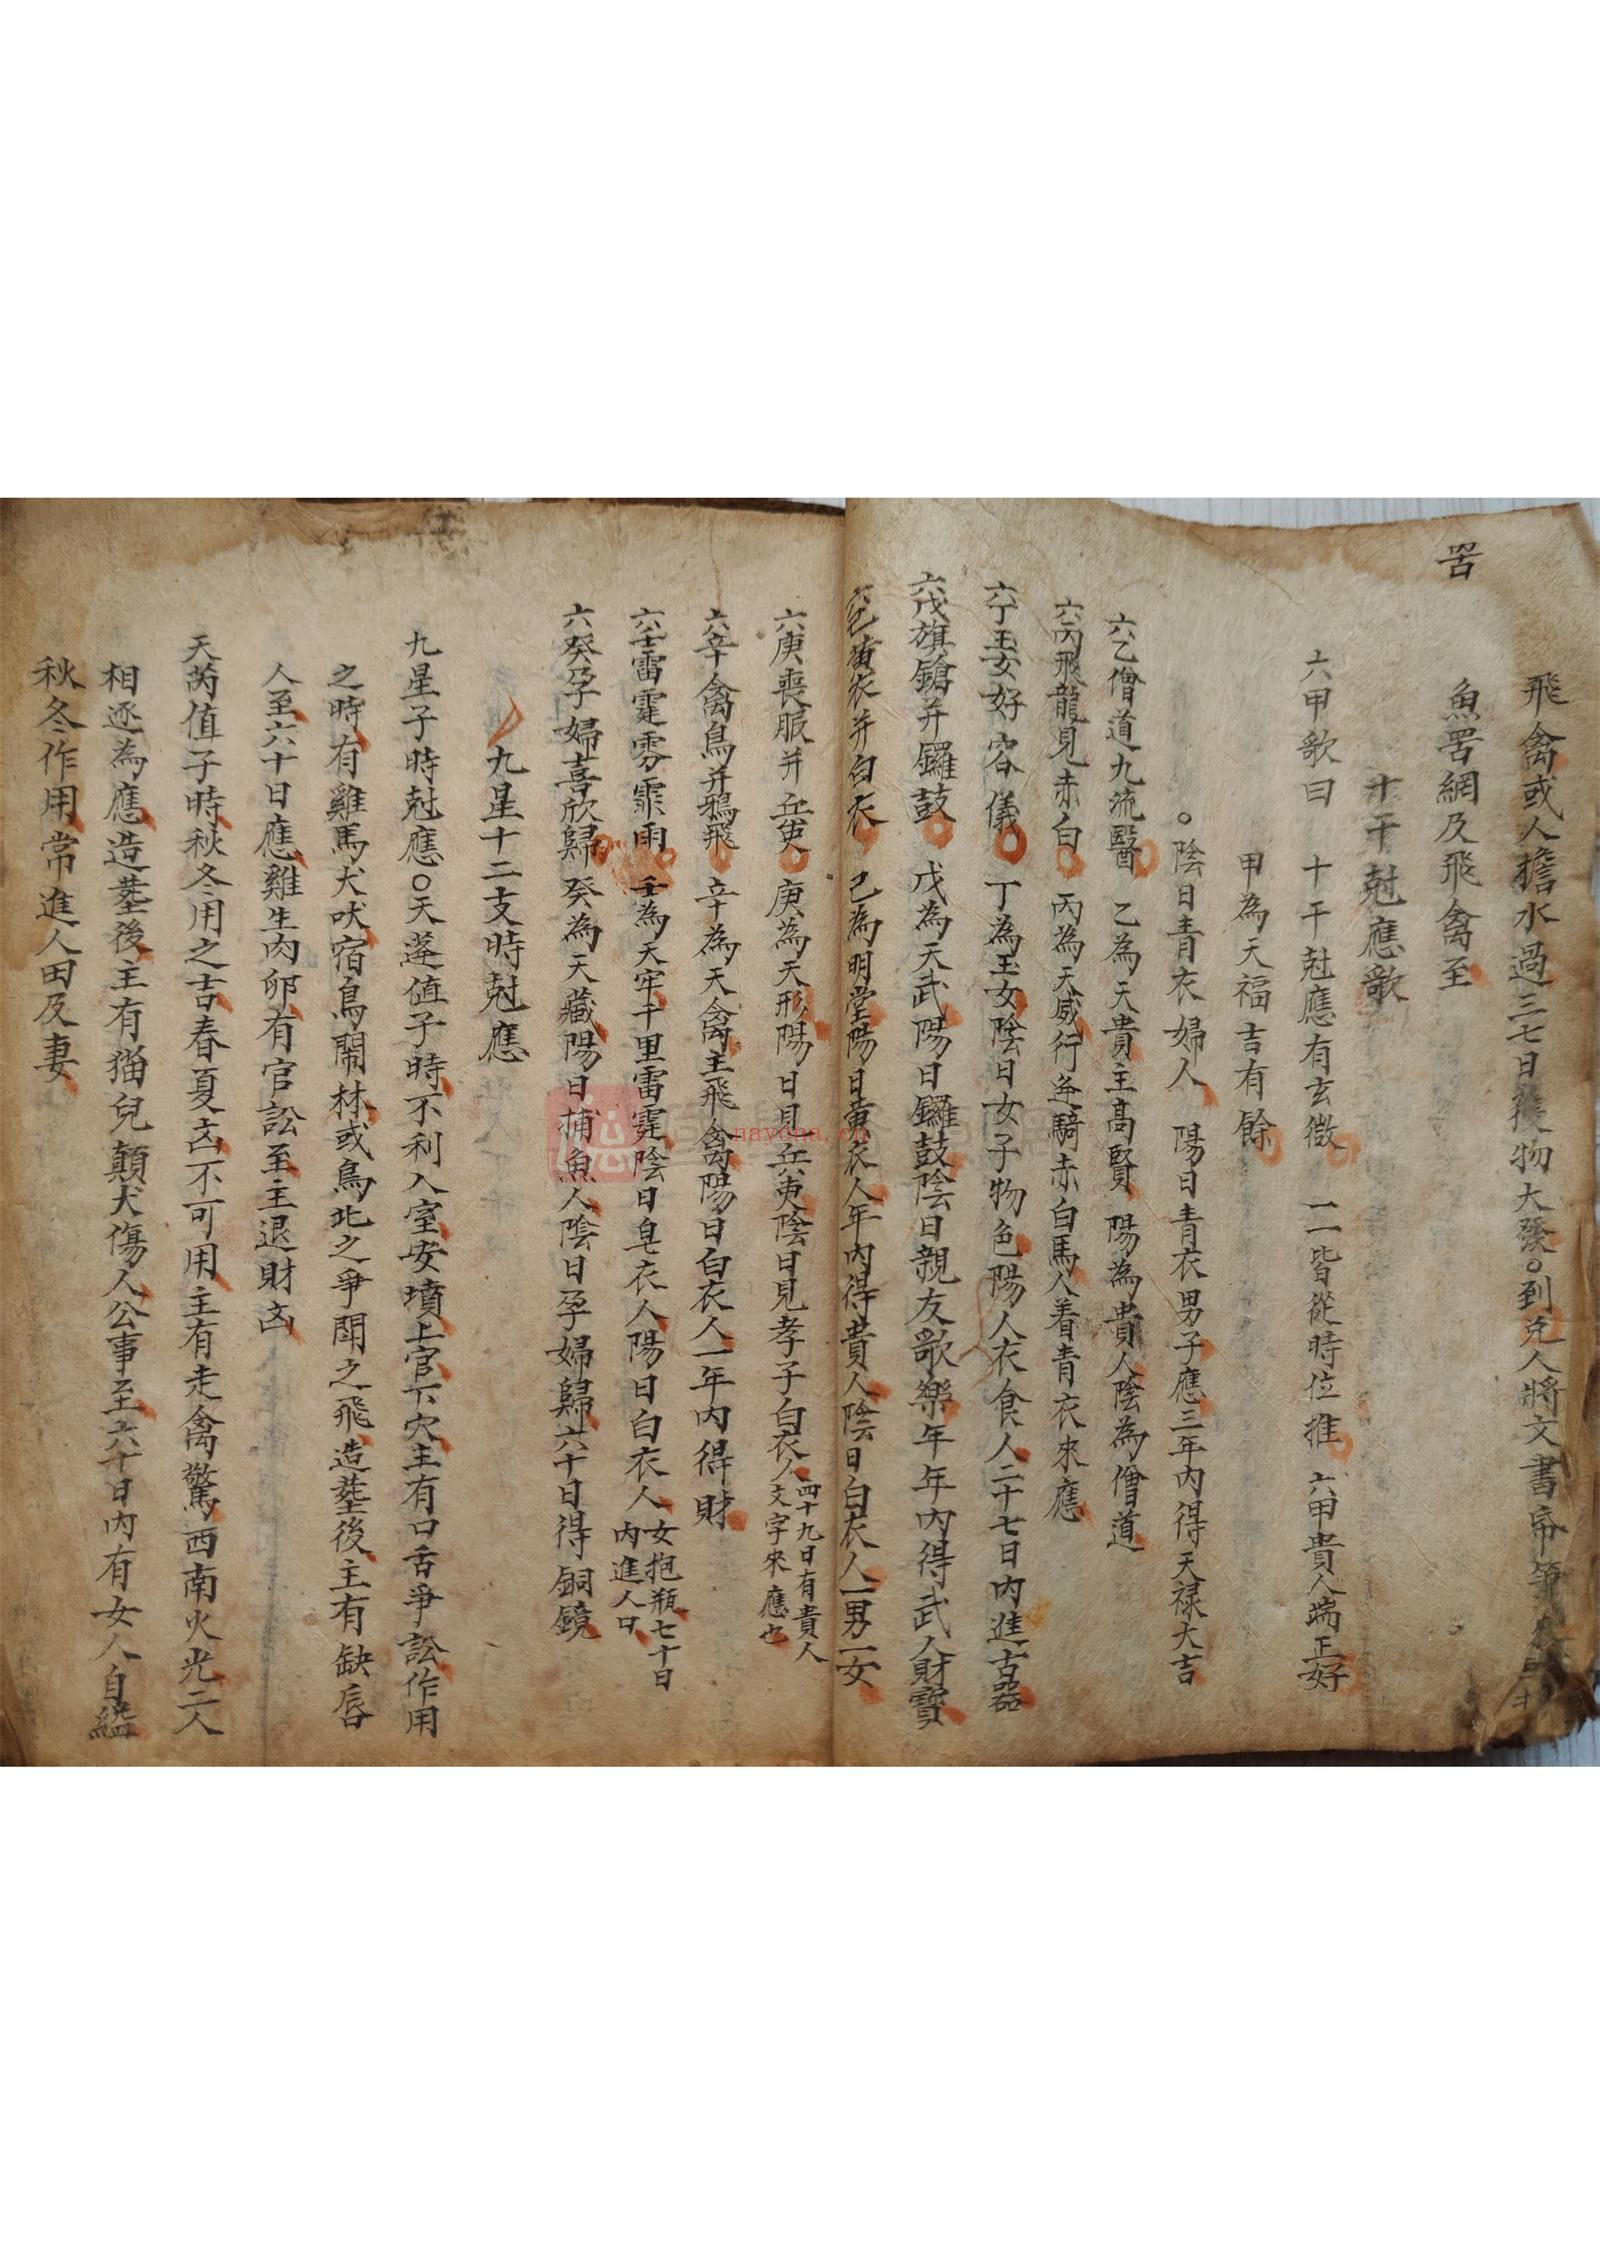 罟
飛禽或人擔水過三七日獲物大發○到兌人將文書帋筆
魚罟網及飛禽至
十干尅應歌
六甲歌曰 十干尅應有玄微 一一皆從時位推 六甲貴人端正好
甲為天福吉有餘
○陰日青衣婦人 陽日青衣男子應三年內得天禄大吉
六乙僧道九流醫 乙為天貴主高賢 陽為貴人陰為僧道
六丙飛龍見赤白 丙為天威行逢騎赤白馬人着青衣來應
六丁玉女好容儀 丁為玉女陰日女子物色陽人衣食人二十七日內進古器
六戊旗鎗并鑼鼓 戊為天武陽日鑼鼓陰日親友歌樂年年內得武人財寳
六己黃衣并白衣 己為明堂陽日黃衣人年內得貴人陰日白衣人一男一女
六庚喪服并兵吏 庚為天形陽日見兵吏陰日見孝子白衣人四十九日有貴人
文字來應也
六辛禽鳥并鴉飛 辛為天禽主飛禽陽日白衣人一年內得財
六壬雷霆雰霏雨 壬為天牢千里雷霆陰日皂衣人陽日白衣人女抱瓶七十日
內進人口
六癸孕婦喜欣歸 癸為天藏陽日捕魚人陰日孕婦歸六十日得銅鏡
九星十二支時尅應
九星子時尅應○天蓬值子時不利入室安墳上官下穴主有口舌爭訟作用
之時有雞馬犬吠宿鳥鬧林或鳥北之爭鬧之飛造塟後主有缺唇
人至六十日應雞生肉卵有官訟至主退財凶
天芮值子時秋冬用之吉春夏凶不可用主有走禽驚西南火光二人
相逐為應造塟後主有猫兒顛犬傷人公事至六十日內有女人自縊
秋冬作用常進人田及妻